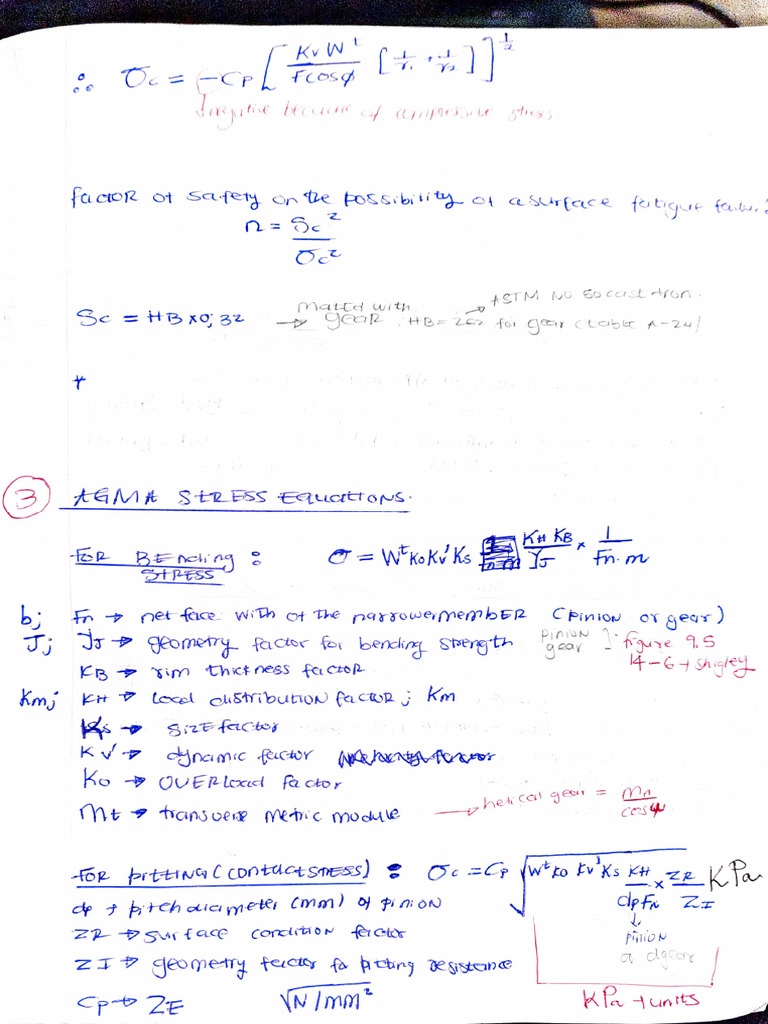 ∴ σc = -Cp [ KvW^t / Fcosφ [ 1/r1 + 1/r2 ] ]^1/2
negative because of compressive stress.
factor of safety on the possibility of a surface fatigue
n = Sc^2 / σc^2
Sc = HB x 0,32 → mated with gear. HB = for gear (table A-24) → ASTM NO 50 cast iron.
③ AGMA STRESS EQUATIONS.
FOR BENDING STRESS : σ = W^t Ko Kv' Ks KH KB / YJ x 1 / Fn.m
b; Fn → net face with of the narrower member (pinion or gear)
J; YJ → geometry factor for bending strength pinion gear ] . figure 9.5
KB → rim thickness factor 14-6 → shigley
Km; KH → load distribution factor; Km
Ks → size factor
Kv' → dynamic factor
Ko → OVERload factor
Mt → transverse metric module → helical gear = Mn / cosψ
FOR PITTING (CONTACT STRESS) : σc = Cp √ W^t Ko Kv' Ks KH / dpFn x ZR / ZI KPa
dp → pitch diameter (mm) of pinion
ZR → surface condition factor
pinion
ZI → geometry factor for pitting resistance
Cp → ZE √N/mm^2 KPa → units